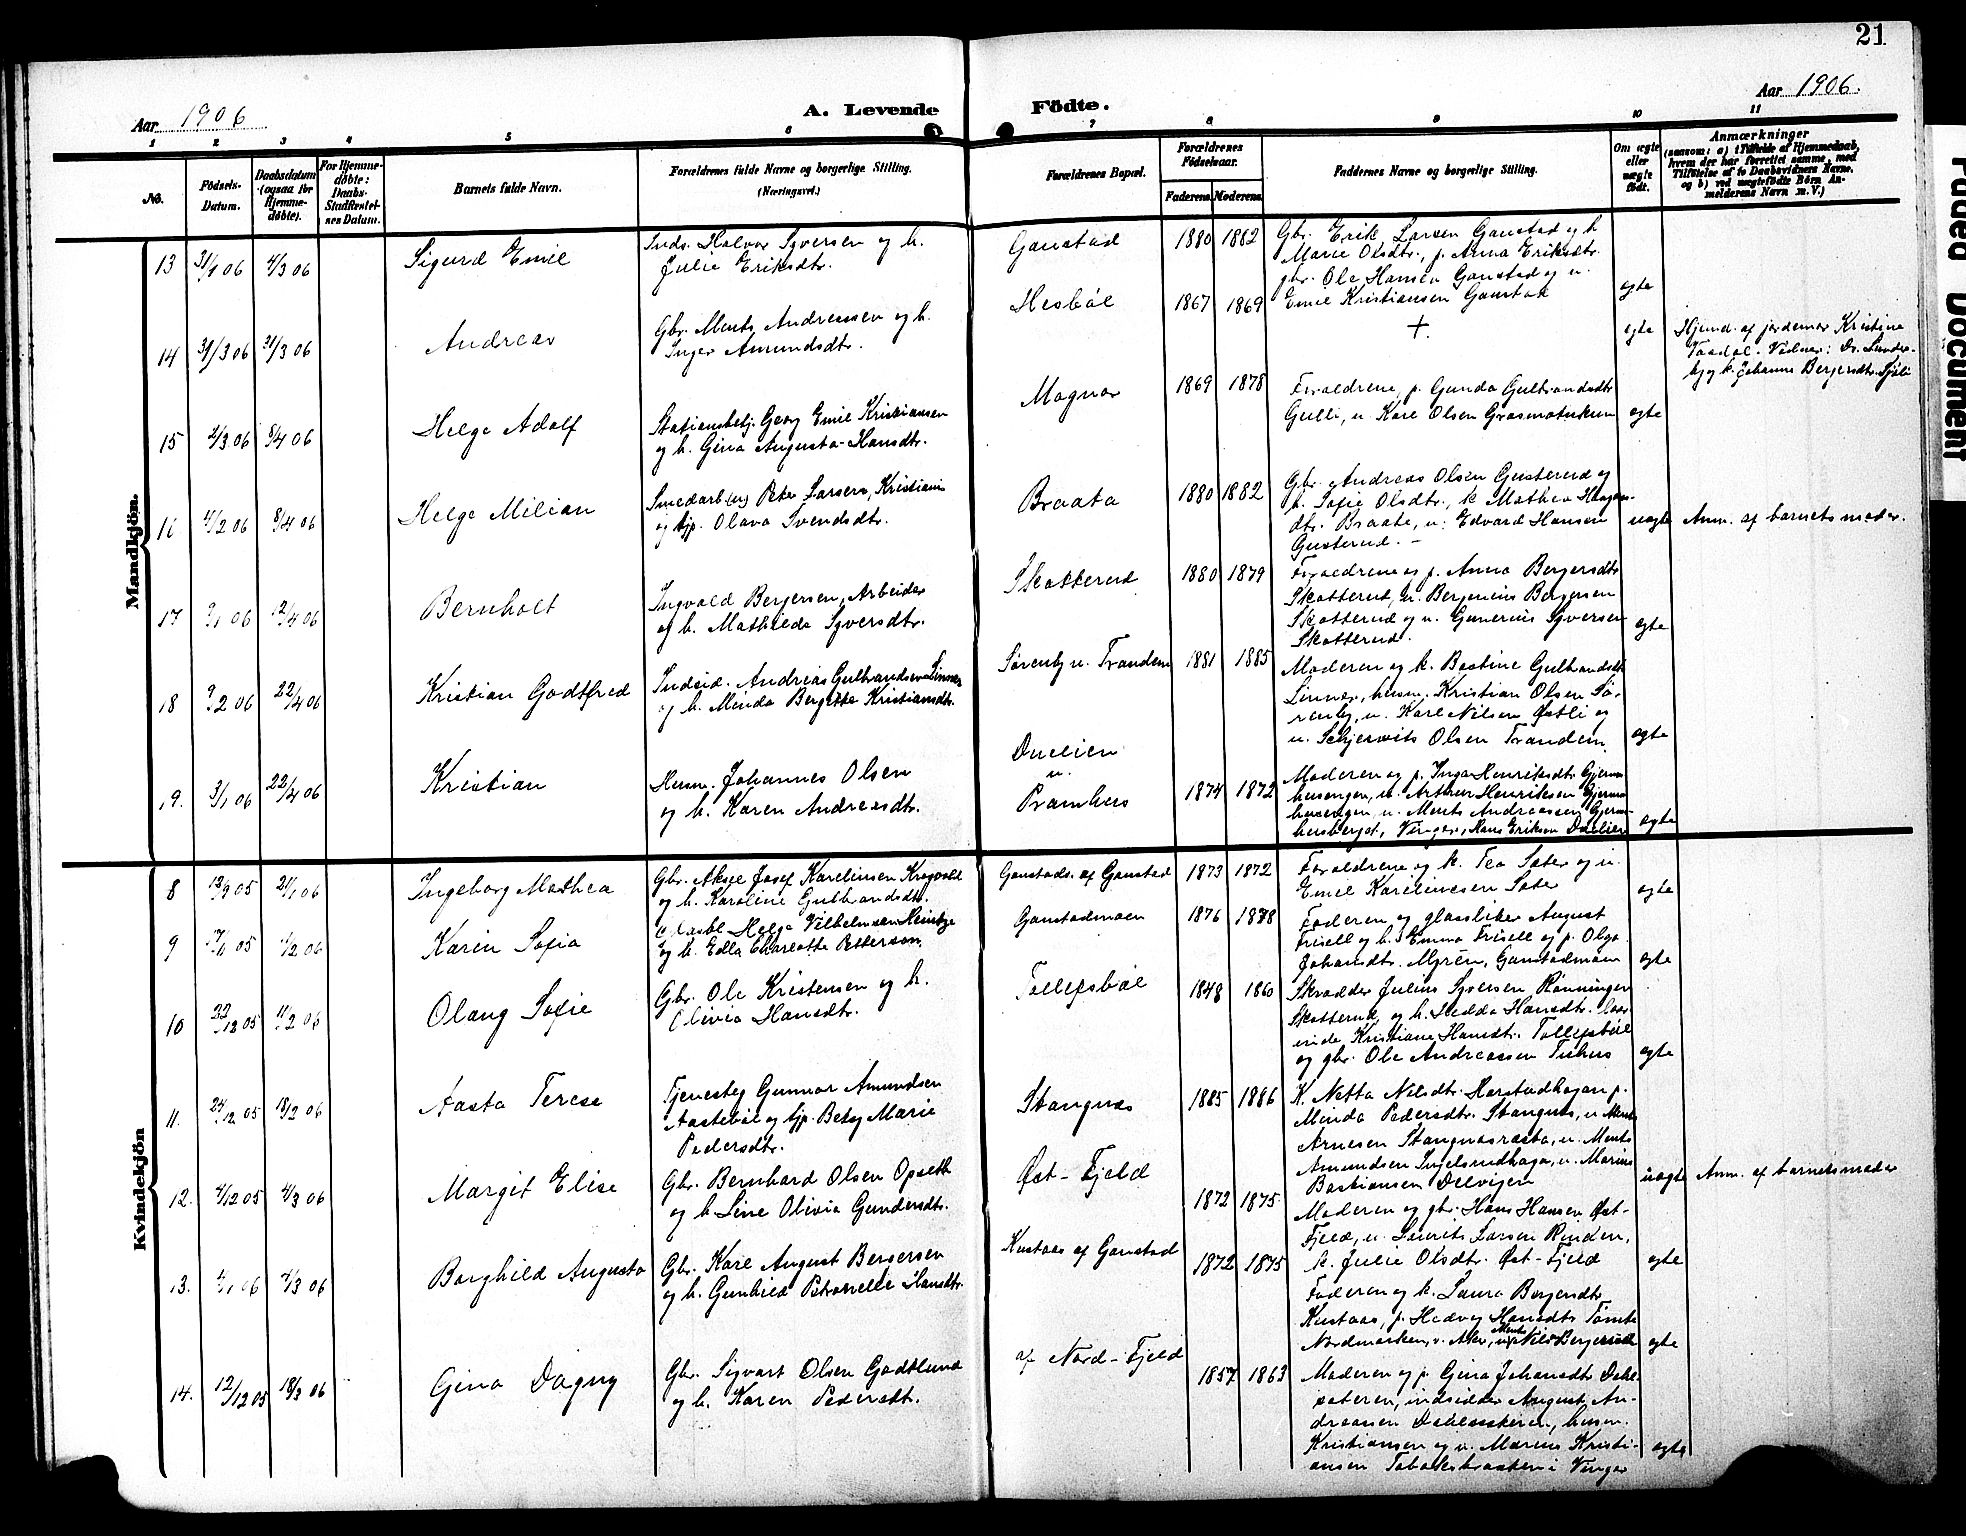 21
Aar 1906
A. Levende
Födte.
Aar 1906.
1 2 3 4 5 6 7 8 9 10 11
No.
Födsels-Datum.
Daabsdatum (ogsaa for Hjemmedöbte).
For Hjemmedöbte: Daabs-Stadfæstelsens Datum.
Barnets fulde Navn.
Forældrenes fulde Navne og borgerlige Stilling. (Næringsvei.)
Forældrenes Bopæl.
Forældrenes Födselsaar.
Faderens. Moderens.
Faddernes Navne og borgerlige Stilling.
Om ægte eller uægte födt.
Anmærkninger
(saasom: a) i Tilfælde af Hjemmedaab, hvem der har forrettet samme, med Tilföielse af to Daabsvidners Navne, og b) ved uægtefödte Börn Anmelderens Navn m. V.)
Mandkjön.
13 31/1 06 4/3 06 Sigurd Emil
Inds. Halvor Syversen og h.
Julie Eriksdtr.
Gaustad 1880 1882
Gbr. Erik Larsen Gaustad og h
Marie Olsdtr., p. Anna Eriksdtr.
gbr. Ole Hansen Gaustad og u.
Emil Kristiansen Gaustad
ægte
14 31/3 06 31/3 06 Andreas
Gbr. Ments Andreassen og h.
Inger Amundsdtr.
Hesbøl 1867 1869
+
ægte
Hjemd. af jordemor Kristine
15 2/3 06 8/4 06 Helge Adolf
Stationsbetj. Georg Emil Kristiansen
og h. Gina Augusta Hansdtr.
Magnor 1869 1878
Forældrene, p. Gunda Gulbrandsdtr
Gulli, u. Karl Olsen
ægte
16 4/2 06 8/4 06 Helge Milian
Smedarb. ug. Peter Larsen, Kristiania
og tjp. Olava Svendsdtr.
Braata 1880 1882
Gbr. Andreas Olsen Gusterud og
h. Sofie Olsdtr., k. Mathea
dtr. Braate, u. Edvard Hansen
Gusterud. –
uægte Anm. af barnets moder.
17 9/1 06 12/4 06 Bernholt
Ingvald Bergersen, Arbeider
og h. Mathilde Syversdtr.
Skotterud 1880 1879
Forældrene og p. Anna Bergersdtr
Skotterud, u. Bergenius Bergersen
Skotterud og u. Gunerius Syversen
Skotterud.
ægte
18 9/2 06 22/4 06 Kristian Godtfred
Indsid. Andreas Gulbrandsen Linner
og h. Minda Bergitte Kristiansdtr.
Sørenby u. Trandem 1881 1885
Moderen og k. Bastine Gulbrandsdtr
Linner, husm. Kristian Olsen Sø-
renby, u. Karl Nilsen Østli og
u. Olsen Trandem.
ægte
19. 3/1 06 22/4 06 Kristian
Husm. Johannes Olsen
og h. Karen Andreasdtr.
u.
Pramhus 1874 1872
Moderen og p. Inga Henriksdtr
u. Arthur Henriksen
u. Ments Andreassen
Vinger, Hans Eriksen
ægte
Kvindekjön
8 12/9 05 21/1 06 Ingeborg Mathea
Gbr. Aksel Josef Karelinsen Krogvold
og h. Karoline Gulbrandsdtr.
Gaustads. af Gaustad 1873 1872
Forældrene og k. Tea Sæter og u.
Emil Karelinesen Sæter
ægte
9 05 1/2 06 Karin Sofia
Helge Vilhelmsen
og h. Ella Charlotta Petterson.
Gaustadmoen 1876 1878
Faderen og glassliber August
Frisell og h. Emma Frisell og p. Olga
Johansdtr. Myren, Gaustadmoen
ægte
10 22/12 05 11/2 06 Olaug Sofie
Gbr. Ole Kristensen og h.
Olivia Hansdtr.
Tollefsbøl 1848 1860
Skrædder Julius Syversen Rønningen
Skotterud, og h. Hedda Hansdtr.
Kristiane Hansdtr. Tollefsbøl
og gbr. Ole Andreassen
ægte
11. 24/12 05 18/2 06 Aasta Terese
Tjenesteg. Gunnar Amundsen
Aastebøl og tjp. Betsy Marie
Pedersdtr.
Stangnæs 1885 1886
K. Netta Nilsdtr. Harstadhagan p.
Minda Pedersdtr. Stangnæs, u.
Arnesen u. Ments
Amundsen u. Marius
Bastiansen
uægte Anm. af barnets moder
12. 4/12 05 4/3 06 Margit Elise
Gbr. Bernhard Olsen Opseth
og h. Line Olivia Gundersdtr.
Øst-Fjeld 1872 1875
Moderen og gbr. Hans Hansen Øst-
Fjeld, u. Laurits Larsen Rinden,
k. Julie Olsdtr. Øst-Fjeld
ægte
13. 06 4/3 06 Borghild Augusta
Gbr. Karl August Bergersen
og h. Gunhild Petronelle Hansdtr.
Kustaas af Gaustad 1872 1875
Faderen og k. Laura Bergersdtr
Kustaas, p. Hedvig Hansdtr. Tømte
Nordmarken,
ægte
14. 12/12 05 18/3 06 Gina Dagny
Gbr. Sigvart Olsen Godtlund
og h. Karen Pedersdtr.
af Nord-Fjeld 1857 1863
Moderen og p. Gina Johansdtr.
indsidder August An-
dreassen husm.
Kristiansen og u. Marius Kristi-
ansen i Vinger
ægte
Faded Document